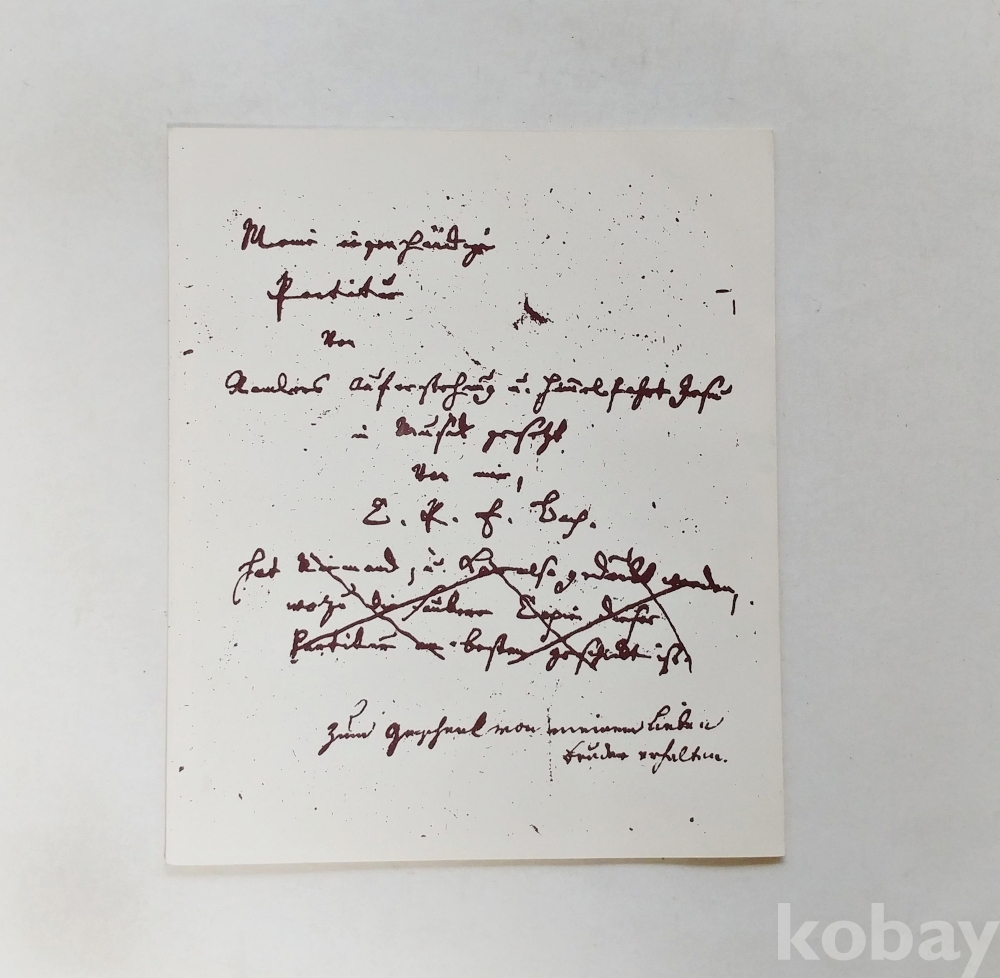 Meine eigenhändige
Partitur
Von
Ramlers Auferstehung u. Him̄elfahrt Jesu
in Musik gesetzt
Von mir,
C. P. E. Bach.
hat Niemand, u. kann also gedruckt werden,
wozu die saubere Copie dieser
Partitur am besten geschickt ist.
Zum Geschenk von meinem lieben
Bruder erhalten.
kobay